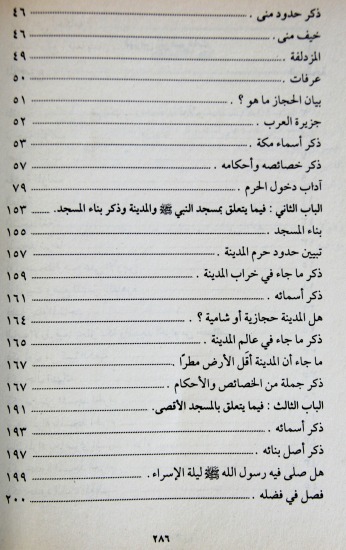 ذكر حدود منى . ٤٦
خيف منى . ٤٦
المزدلفة ٤٩
عرفات . ٥٠
بيان الحجاز ما هو ؟ . ٥١
جزيرة العرب . ٥٢
ذكر أسماء مكة . ٥٣
ذكر خصائصه وأحكامه . ٥٧
آداب دخول الحرم . ٧٩
الباب الثاني : فيما يتعلق بمسجد النبي ﷺ والمدينة وذكر بناء المسجد. ١٥٣
بناء المسجد . ١٥٥
تبيين حدود حرم المدينة . ١٥٧
ذكر ما جاء في خراب المدينة . ١٥٩
ذكر أسمائه . ١٦١
هل المدينة حجازية أو شامية ؟ . ١٦٤
ذكر ما جاء في عالم المدينة . ١٦٥
ما جاء أن المدينة أقل الأرض مطرًا . ١٦٧
ذكر جملة من الخصائص والأحكام . ١٦٧
الباب الثالث : فيما يتعلق بالمسجد الأقصى. ١٩١
ذكر أسمائه . ١٩٣
ذكر أصل بنائه . ١٩٧
هل صلى فيه رسول الله ﷺ ليلة الإسراء . ١٩٩
فصل في فضله . ٢٠٠
٢٨٦